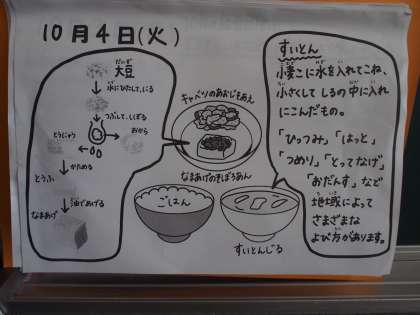 10月4日(火)
だいず
大豆
水にひたして、にる
つぶして、しぼる
とうにゅう
おから
かためる
とうふ
油であげる
なまあげ
キャベツのあおじそあえ
なまあげのきのこあん
ごはん
すいとんじる
すいとん
小麦こに水を入れてこね、
小さくして しるの中に入れ
にこんだもの。
「ひっつみ」「はっと」
「つめり」「とってなげ」
「おだんす」など
地域によって
さまざまな
よび方があります。